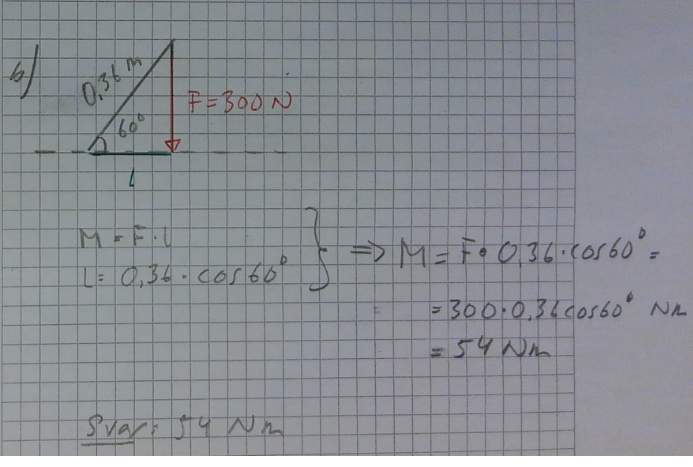 b)
0,36 m
F=300 N
60°
l
M = F·l
L= 0,36 · cos60°
=> M = F· 0,36·cos60° =
= 300·0,36cos60° Nm
= 54 Nm
Svar: 54 Nm